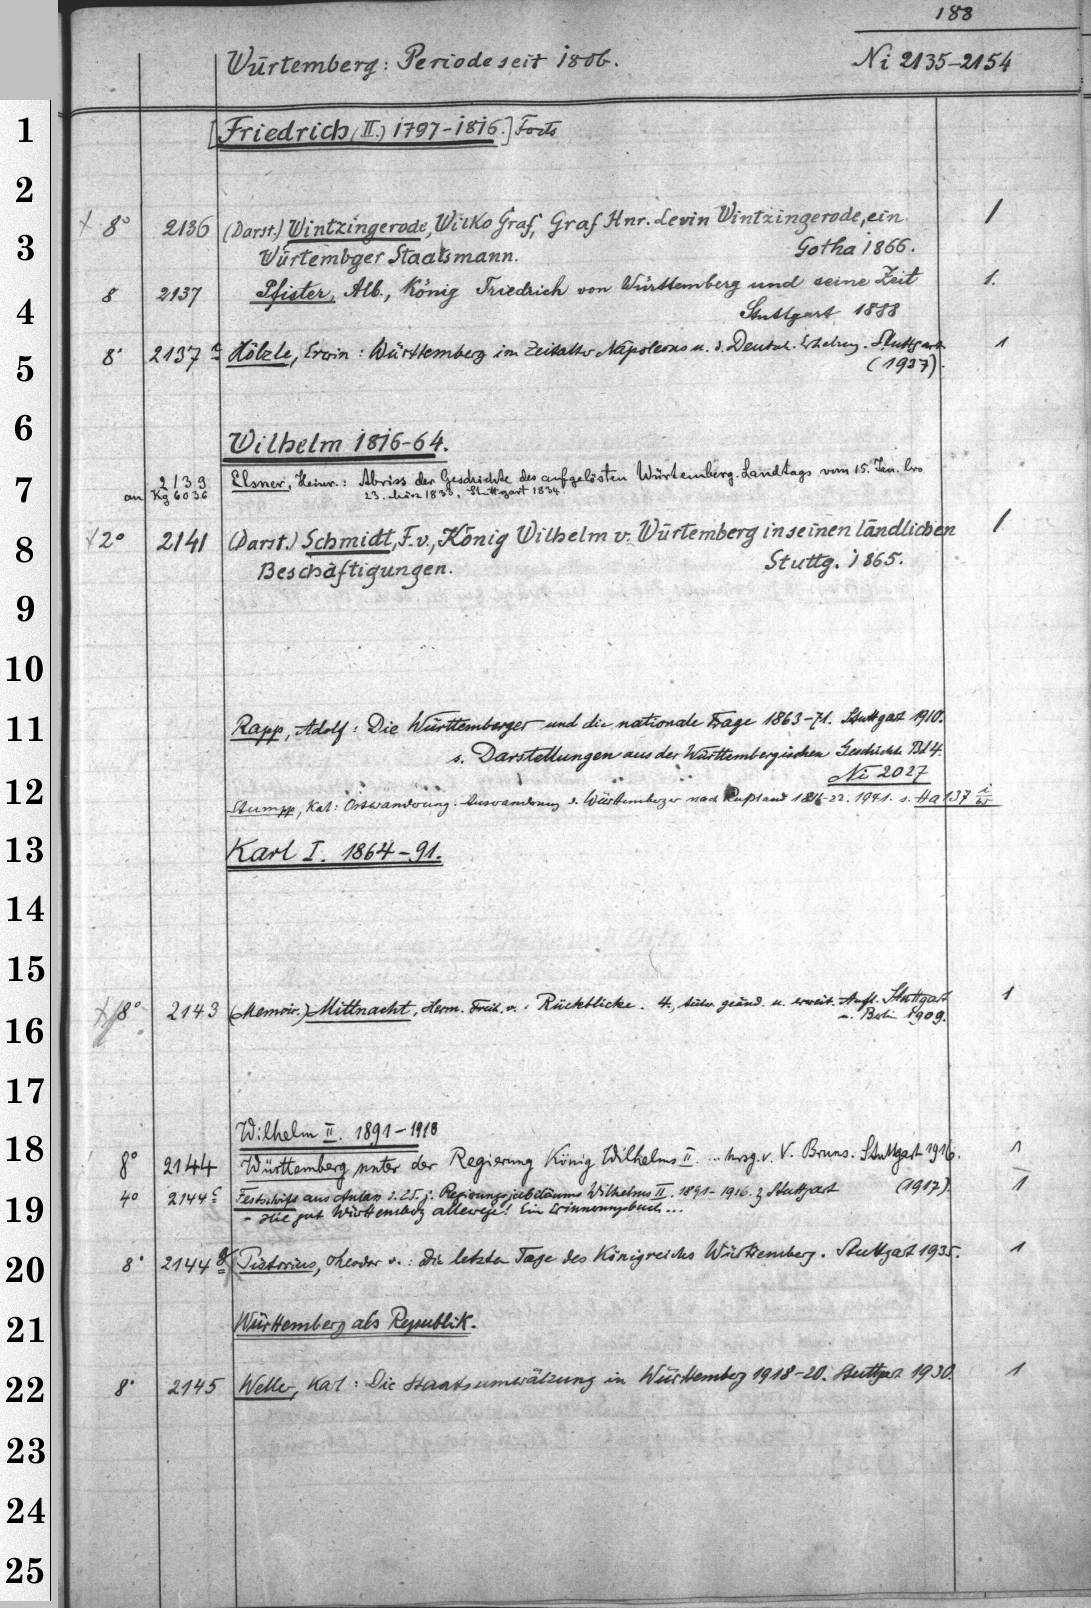 188
Würtemberg: Periode seit 1806. Ni 2135-2154
1
[Friedrich (II.) 1797-1816.] Forts
2
8° 2136 (Darst.) Wintzingerode, Wilko Graf, Graf Hnr. Levin Wintzingerode, ein 1
3 Würtembger Staatsmann. Gotha 1866.
8 2137 Pfister, Alb., König Friedrich von Württemberg und seine Zeit 1.
4 Stuttgart 1888
5 8° 2137 c Hölzle, Erwin: Württemberg im Zeitalter Napoleons u. d. Deutsch. Erhebung. Stuttgart 1
(1937).
6
Wilhelm 1816-64.
7 2139 Elsner, Heinr.: Abriss der Geschichte des aufgelösten Würtemberg. Landtags vom 15. Jan. bis
an Kg 6036 23. März 1833. Stuttgart 1834.
8 2° 2141 (Darst.) Schmidt, F. v., König Wilhelm v. Würtemberg in seinen ländlichen 1
Beschäftigungen. Stuttg. 1865.
9
10
11 Rapp, Adolf: Die Württemberger und die nationale Frage 1863-71. Stuttgart 1910.
s. Darstellungen aus der Württembergischen Geschichte Bd 4.
Ni 2027
12 Stumpp, Karl: Ostwanderung. Auswanderung d. Württemberger nach Rußland 1816-22. 1941. s. Ha 137
13 Karl I. 1864-91.
14
15
8° 2143 (Memoir.) Mittnacht, Herm. Freih. v.: Rückblicke. 4., teilw. geänd. u. erweit. Aufl. Stuttgart 1
16 u. Berlin 1909.
17
Wilhelm II. 1891-1918
18 8° 2144 Württemberg unter der Regierung König Wilhelms II. ... hrsg. v. V. Bruns. Stuttgart 1916. 1
4° 2144 c Festschrift aus Anlass d. 25. j. Regierungsjubiläums Wilhelms II. 1891-1916. Stuttgart (1917). 1
19 - Hie gut Württemberg allewege! Ein Erinnerungsbuch ...
20 8° 2144 g Pistorius, Theodor v.: Die letzten Tage des Königreiches Württemberg. Stuttgart 1935. 1
21 Württemberg als Republik.
22 8° 2145 Weller, Karl: Die Staatsumwälzung in Württemberg 1918-20. Stuttgart 1930. 1
23
24
25